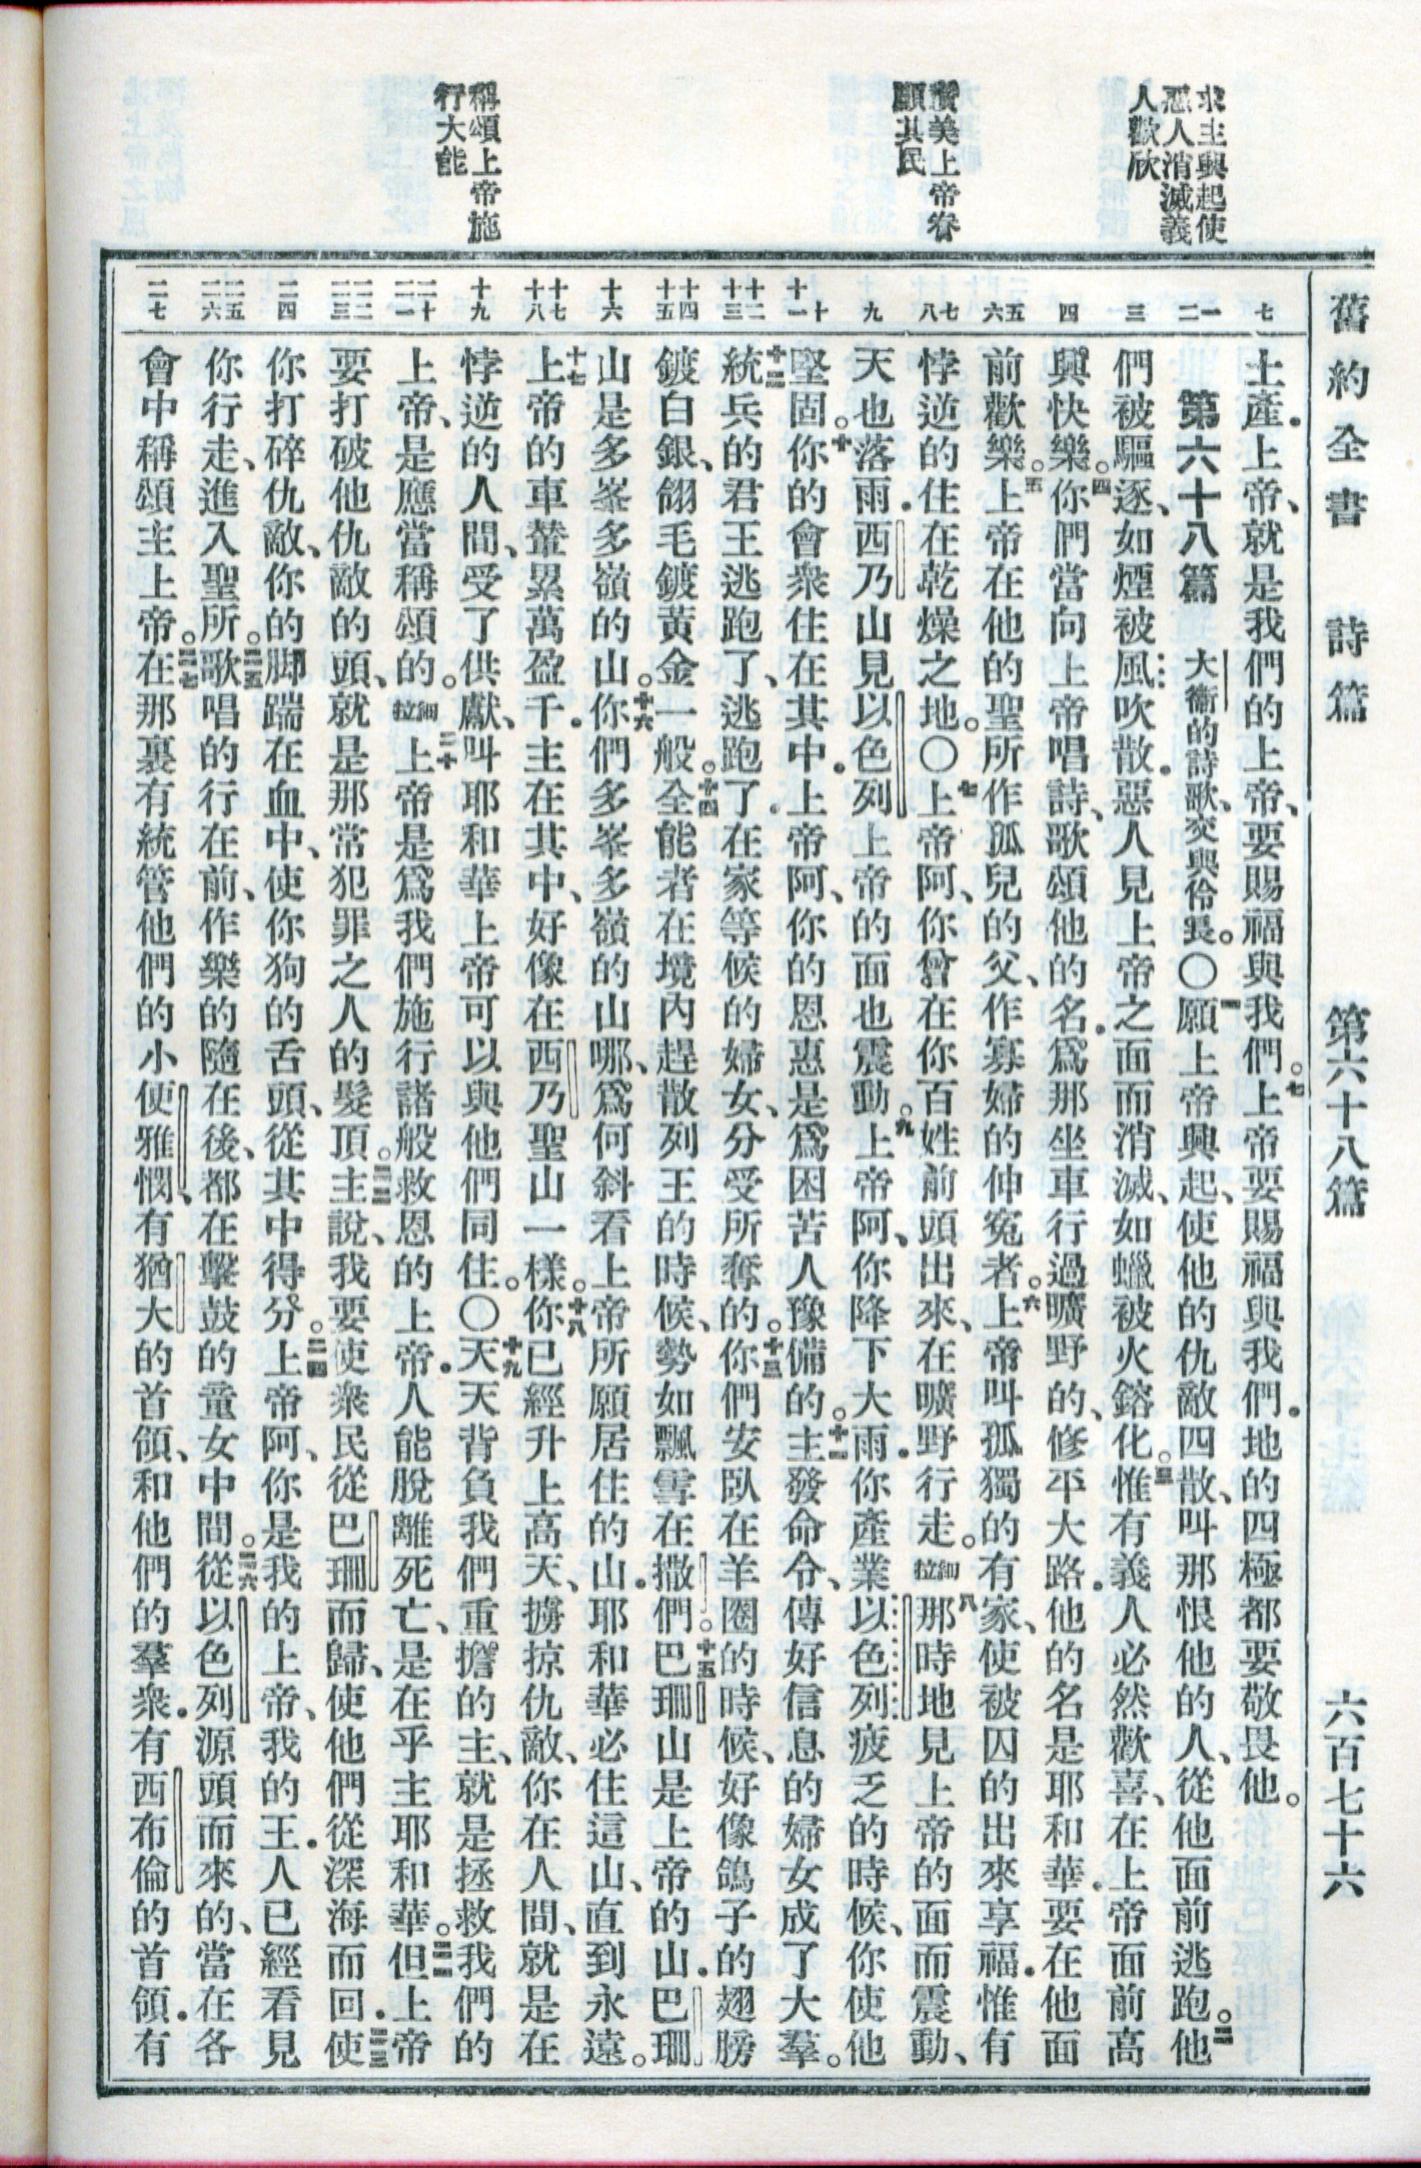 舊約全書　詩篇　第六十八篇　六百七十六
求主興起使
惡人消滅義
人歡欣
讚美上帝眷
顧其民
稱頌上帝施
行大能
七
一
二
三
四
五
六
七
八
九
十
十一
十二
十三
十四
十五
十六
十七
十八
十九
二十
二一
二二
二三
二四
二五
二六
二七
土產．上帝、就是我們的上帝、要賜福與我們。七上帝要賜福與我們．地的四極都要敬畏他。
第六十八篇　大衞的詩歌、交與伶長。〇一願上帝興起、使他的仇敵四散、叫那恨他的人、從他面前逃跑。二他
們被驅逐、如煙被風吹散．惡人見上帝之面而消滅、如蠟被火鎔化。三惟有義人必然歡喜、在上帝面前高
興快樂。四你們當向上帝唱詩、歌頌他的名．爲那坐車行過曠野的、修平大路．他的名是耶和華．要在他面
前歡樂。五上帝在他的聖所作孤兒的父、作寡婦的伸寃者。六上帝叫孤獨的有家、使被囚的出來享福．惟有
悖逆的住在乾燥之地。〇七上帝阿、你曾在你百姓前頭出來、在曠野行走。細拉八那時地見上帝的面而震動、
天也落雨．西乃山見以色列上帝的面也震動。九上帝阿、你降下大雨．你產業以色列疲乏的時候、你使他
堅固。十你的會衆住在其中．上帝阿、你的恩惠是爲困苦人豫備的。十一主發命令、傳好信息的婦女成了大羣。
十二統兵的君王逃跑了、逃跑了．在家等候的婦女、分受所奪的。十三你們安臥在羊圈的時候、好像鴿子的翅膀
鍍白銀、翎毛鍍黃金一般。十四全能者在境內趕散列王的時候、勢如飄雪在撒們。十五巴珊山是上帝的山．巴珊
山是多峯多嶺的山。十六你們多峯多嶺的山哪、爲何斜看上帝所願居住的山．耶和華必住這山、直到永遠。
十七上帝的車輦累萬盈千．主在其中、好像在西乃聖山一樣。十八你已經升上高天、擄掠仇敵、你在人間、就是在
悖逆的人間、受了供獻、叫耶和華上帝可以與他們同住。〇十九天天背負我們重擔的主、就是拯救我們的
上帝、是應當稱頌的。細拉二十上帝是爲我們施行諸般救恩的上帝．人能脫離死亡、是在乎主耶和華。二一但上帝
要打破他仇敵的頭、就是那常犯罪之人的髮頂。二二主說、我要使衆民從巴珊而歸、使他們從深海而回．二三使
你打碎仇敵、你的脚踹在血中、使你狗的舌頭、從其中得分。二四上帝阿、你是我的上帝、我的王．人已經看見
你行走、進入聖所。二五歌唱的行在前、作樂的隨在後、都在擊鼓的童女中間。二六從以色列源頭而來的、當在各
會中稱頌主上帝。二七在那裏有統管他們的小便雅憫、有猶大的首領、和他們的羣衆．有西布倫的首領．有